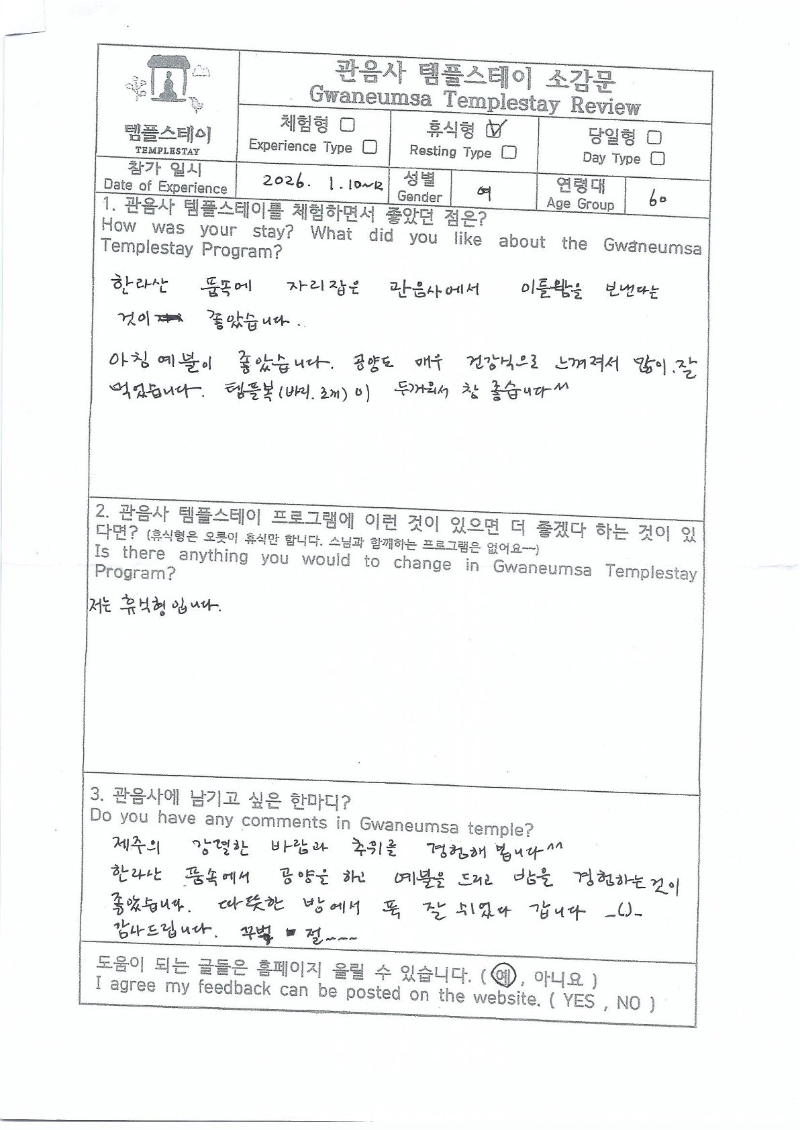 관음사 템플스테이 소감문
Gwaneumsa Templestay Review
템플스테이
TEMPLESTAY
체험형 □ 휴식형 ☑ 당일형 □
Experience Type □ Resting Type □ Day Type □
참가 일시
Date of Experience
2026. 1.10~12
성별
Gender
여
연령대
Age Group
60
1. 관음사 템플스테이를 체험하면서 좋았던 점은?
How was your stay? What did you like about the Gwaneumsa
Templestay Program?
한라산 품속에 자리잡은 관음사에서 이틀밤을 보낸다는
것이 좋았습니다.
아침예불이 좋았습니다. 공양도 매우 건강식으로 느껴져서 많이.잘
먹었습니다. 템플복(바지.조끼)이 두꺼워서 참 좋습니다^^
2. 관음사 템플스테이 프로그램에 이런 것이 있으면 더 좋겠다 하는 것이 있
다면? (휴식형은 오롯이 휴식만 합니다. 스님과 함께하는 프로그램은 없어요~~)
Is there anything you would to change in Gwaneumsa Templestay
Program?
저는 휴식형입니다.
3. 관음사에 남기고 싶은 한마디?
Do you have any comments in Gwaneumsa temple?
제주의 강렬한 바람과 추위를 경험해 봅니다^^
한라산 품속에서 공양을 하고 예불을 드리고 밤을 경험하는것이
좋았습니다. 따뜻한 방에서 푹 잘 쉬었다 갑니다 _()_
감사드립니다. 꾸벅 절~~~~
도움이 되는 글들은 홈페이지 올릴 수 있습니다. ( 예 , 아니요 )
I agree my feedback can be posted on the website. ( YES , NO )